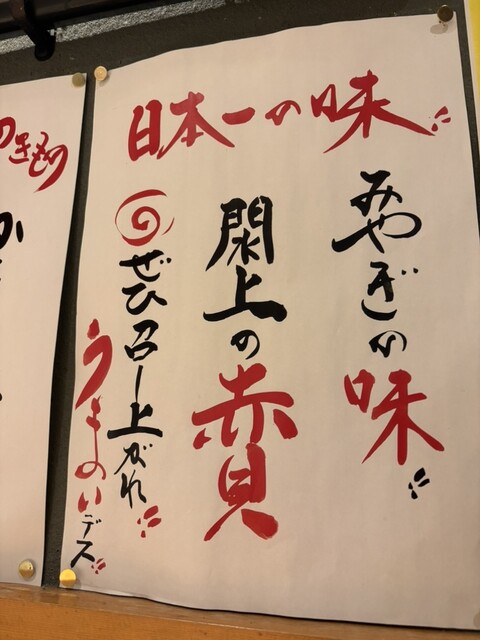 日本一の味
みやぎの味
閖上の赤貝
ぜひ召し上がれ
うまいデス
のきもの
か